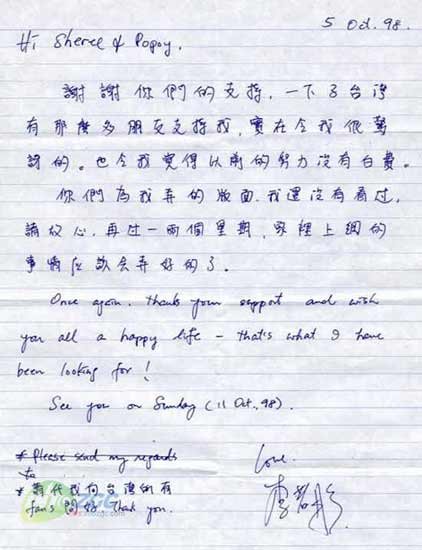 5 Oct. 98.
Hi Sheree & Popoy,
謝謝你們的支持，一下子台灣
有那麼多朋友支持我，實在令我很驚
訝的。也令我覺得以前的努力沒有白費。
你們為我弄的版面，我還沒有看过，
請放心，再过一兩個星期，家裡上網的
事情应該会弄好的了。
Once again, thanks your support and wish
you all a happy life – that's what I have
been looking for!
See you on Sunday (11 Oct., 98).
* Please send my regards
to
* 請代我向台灣的有
fan's 問好 Thank you.
Love,
李若彤